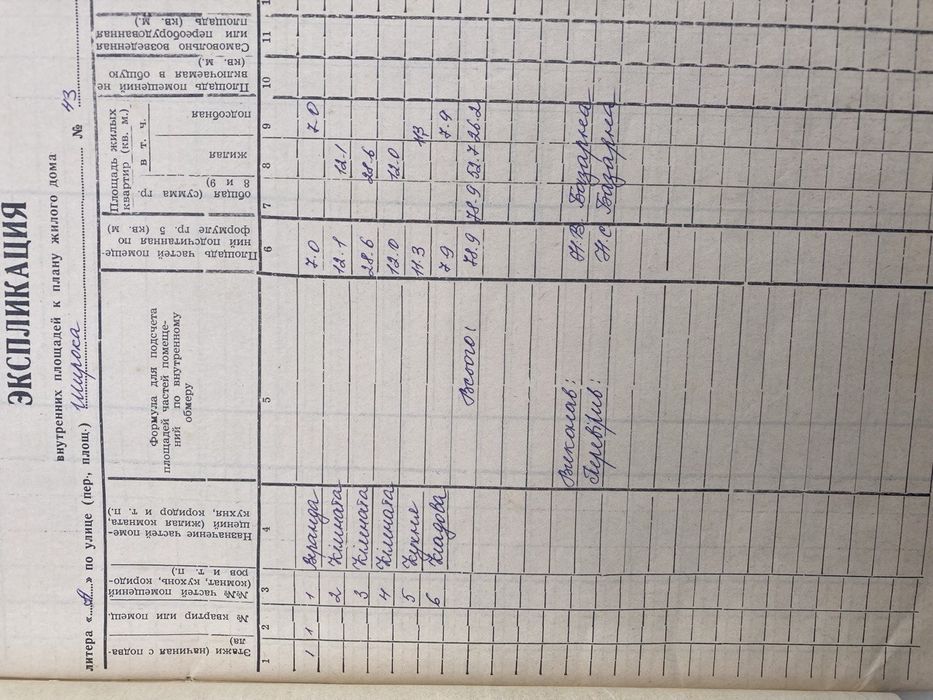 ЭКСПЛИКАЦИЯ
внутренних площадей к плану жилого дома
литера «А» по улице (пер., площ.) Широка № 43
Этажи (начиная с подва-
ла)
№ квартир или помещ.
№№ частей помещений
(комнат, кухонь, коридо-
ров и т. п.)
Назначение частей поме-
щений (жилая комната,
кухня, коридор и т. п.)
Формула для подсчета
площадей частей помеще-
ний по внутренному
обмеру
Площадь частей помеще-
ний подсчитанная по
формуле гр. 5 (кв. м)
Площадь жилых
квартир (кв. м.)
в т. ч.
общая (сумма гр.
8 и 9)
жилая
подсобная
Площадь помещений не
включаемая в общую
(кв. м.)
Самовольно возведенная
или переоборудованная
площадь (кв. м.)
1 2 3 4 5 6 7 8 9 10 11
1 1 1 Веранда 7.0 7.0
2 Кімната 12.1 12.1
3 Кімната 28.6 28.6
4 Кімната 12.0 12.0
5 Кухня 11.3 11.3
6 Кладова 7.9 7.9
Всього: 78.9 78.9 52.7 26.2
Виконав: Н.В. Базарна
Перевірив: Н.С. Базарна